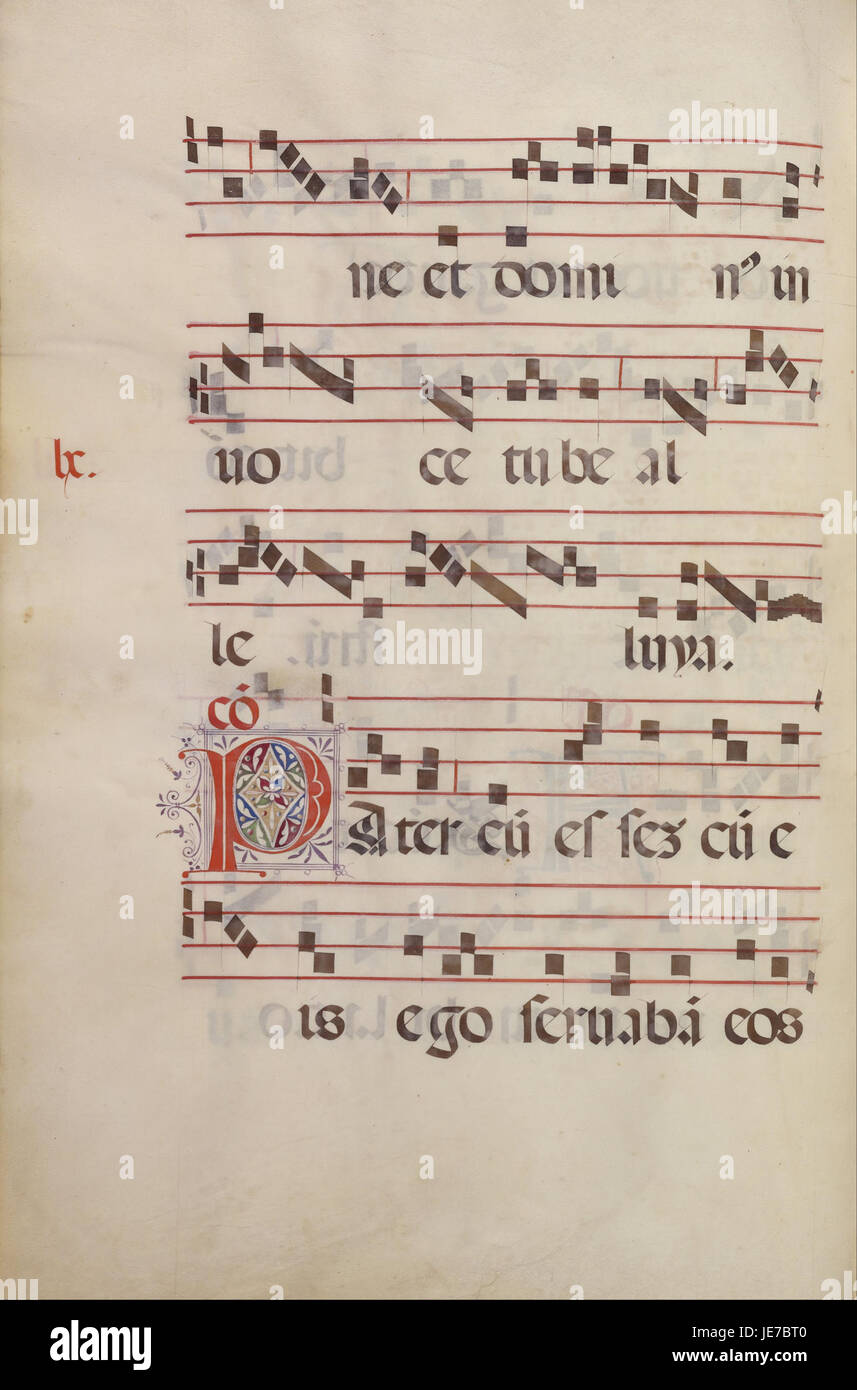 ne et domi n⁹ in
lx. uo ce tu be al
le luya.
có
Pater cū es ses cū e
is ego seruabā eos
alamy
Image ID: JE7BT0
www.alamy.com